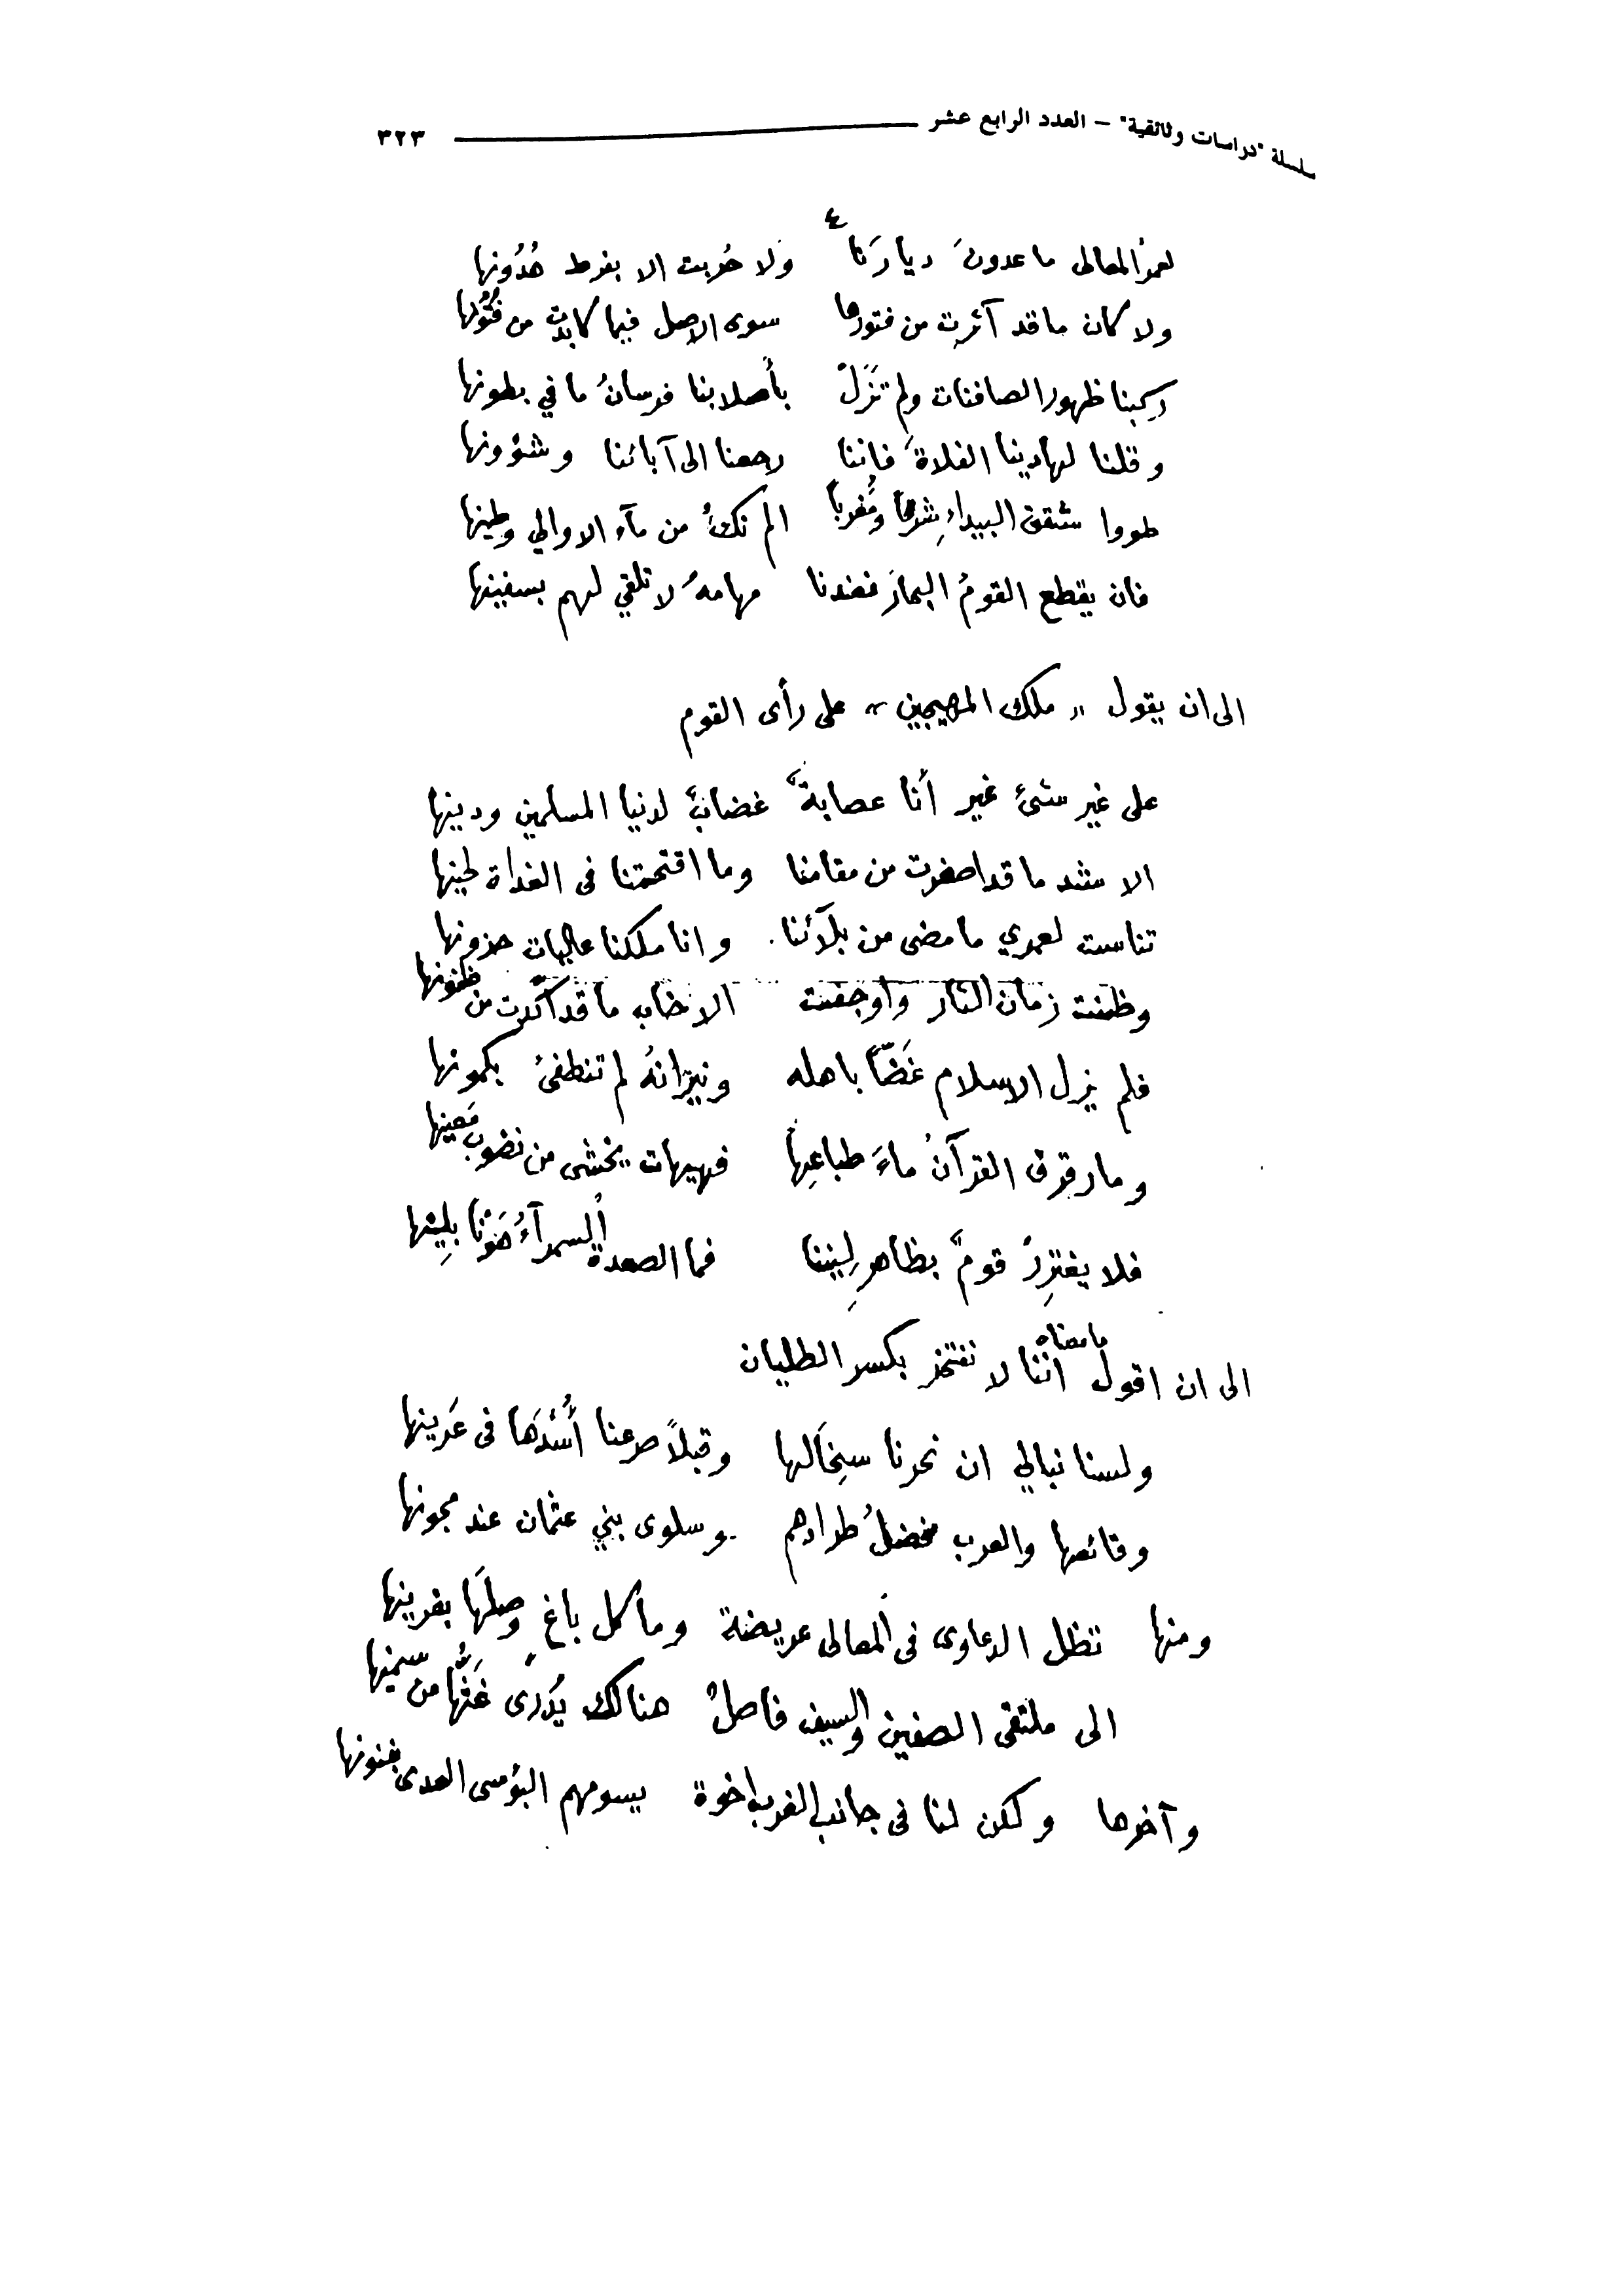 سلسلة "دراسات وثائقية" – العدد الرابع عشر ٣٢٣
٤
لعمرُ المعالى ما عدونَ ديارَنا ولا خُربت الا بفرط هُدُونها
ولا كان ما قد آثرت من فتورها سوى الاصل فيما كابدت من فُتُونها
ركبنا ظهور الصافنات ولم تَزَلْ بأصلابنا فرسانُ ما في بطونها
وقلنا لهادينا الفلاةَ فاننا رجعنا الى آبائنا وشؤونها
طووا شقق البيداءِ شرقاً ومُغرباً الم نكُ من مآء الاوالي وطينها
فان يقطع القومُ البحارَ فعندنا مهامهُ لا تلقي لهم بسفينها
الى ان يقول « ملك المهيجين » على رأى القوم
على غير شئ غير أنا عصابةٌ غضابٌ لدنيا المسلمين ودينها
الا شد ما قد اصغرت من مقامنا وما اقتحمتنا فى الغداة لحينها
تناست لعمري ما مضى من بلآئنا وانا ملكنا عاليات حزونها
وظنت زمان الثار واوجفت الا خاب ما قد أكدت من ظنونها
فلم يزل الاسلام غَضّاً باهله ونيرانُهُ لم تنطفئ بكمونها
وما رقرق القرآنُ ماءَ طباعِها فهيهات يخشى من نضوب مَعينها
فلا يغتررْ قومٌ بظاهرِ لِيننا فما الصعدة السمرآءُ هَوْنا بلِينها
الى ان اقول ما معناه اننا لا نفتخر بكسر الطليان
ولسنا نبالي ان نحرنا سِخَالها وقبلاً صرعنا أُسْدَها فى عَرينها
وقائعها والعرب فضلُ طرادهم وسلوى بني عثمان عند مجونها
ومنها تظل الدعاوى فى المعالى عريضة وما كل باغٍ وصلَها بقرينها
الى ملتقى الصفين والسيف فاصلٌ هنالك يُدرَى غَثُّها من سمينها
وآخرها ولكن لنا فى جانب الغرب اخوة يسومهم البؤسى العدى بفنونها